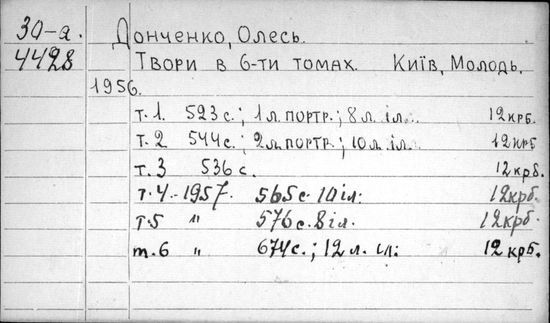 30-а. Донченко, Олесь.
4428 Твори в 6-ти томах. Київ, Молодь,
1956.
т.1. 523 с.; 1 л. портр.; 8 л. іл. 12 крб.
т.2 544 с.; 2 л. портр.; 10 л. іл. 12 крб
т.3 536 с. 12 крб.
т.4.-1957. 565 с. 10 іл. 12 крб.
т.5 " 576 с. 8 іл. 12 крб.
т.6 " 674 с.; 12 л. іл. 12 крб.